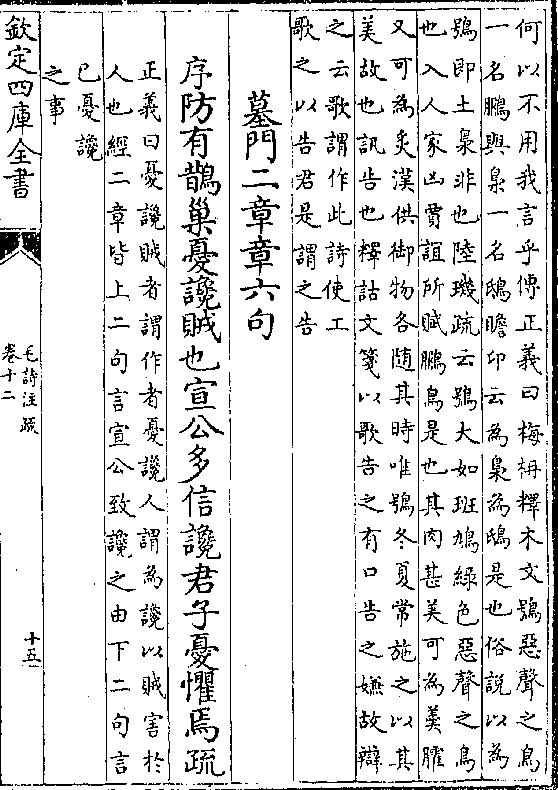 何以不用我言乎傳正義曰梅柟釋木文鴞惡聲之鳥
一名鵩與梟一名鴟瞻卬云為梟為鴟是也俗說以為
鴞即土梟非也陸璣疏云鴞大如班鳩綠色惡聲之鳥
也入人家凶賈誼所賦鵩鳥是也其肉甚美可為羮臛
又可為炙漢供御物各随其時唯鴞冬夏常施之以其
美故也訊告也釋詁文箋以歌告之有口告之嫌故辯
之云歌謂作此詩使工
歌之以告君是謂之告
墓門二章章六句
序防有鵲巢憂讒賊也宣公多信讒君子憂懼焉疏
正義曰憂讒賊者謂作者憂讒人謂為讒以賊害於
人也經二章皆上二句言宣公致讒之由下二句言
已憂讒
之事
欽定四庫全書
毛詩注疏
卷十二
十五